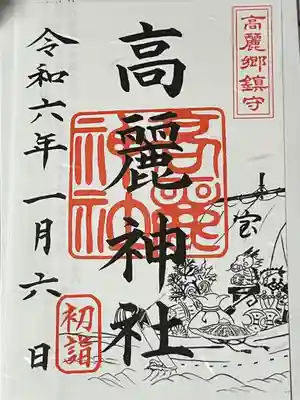 高麗郷鎮守
高麗神社
高麗神社
宝
令和六年一月六日
初詣